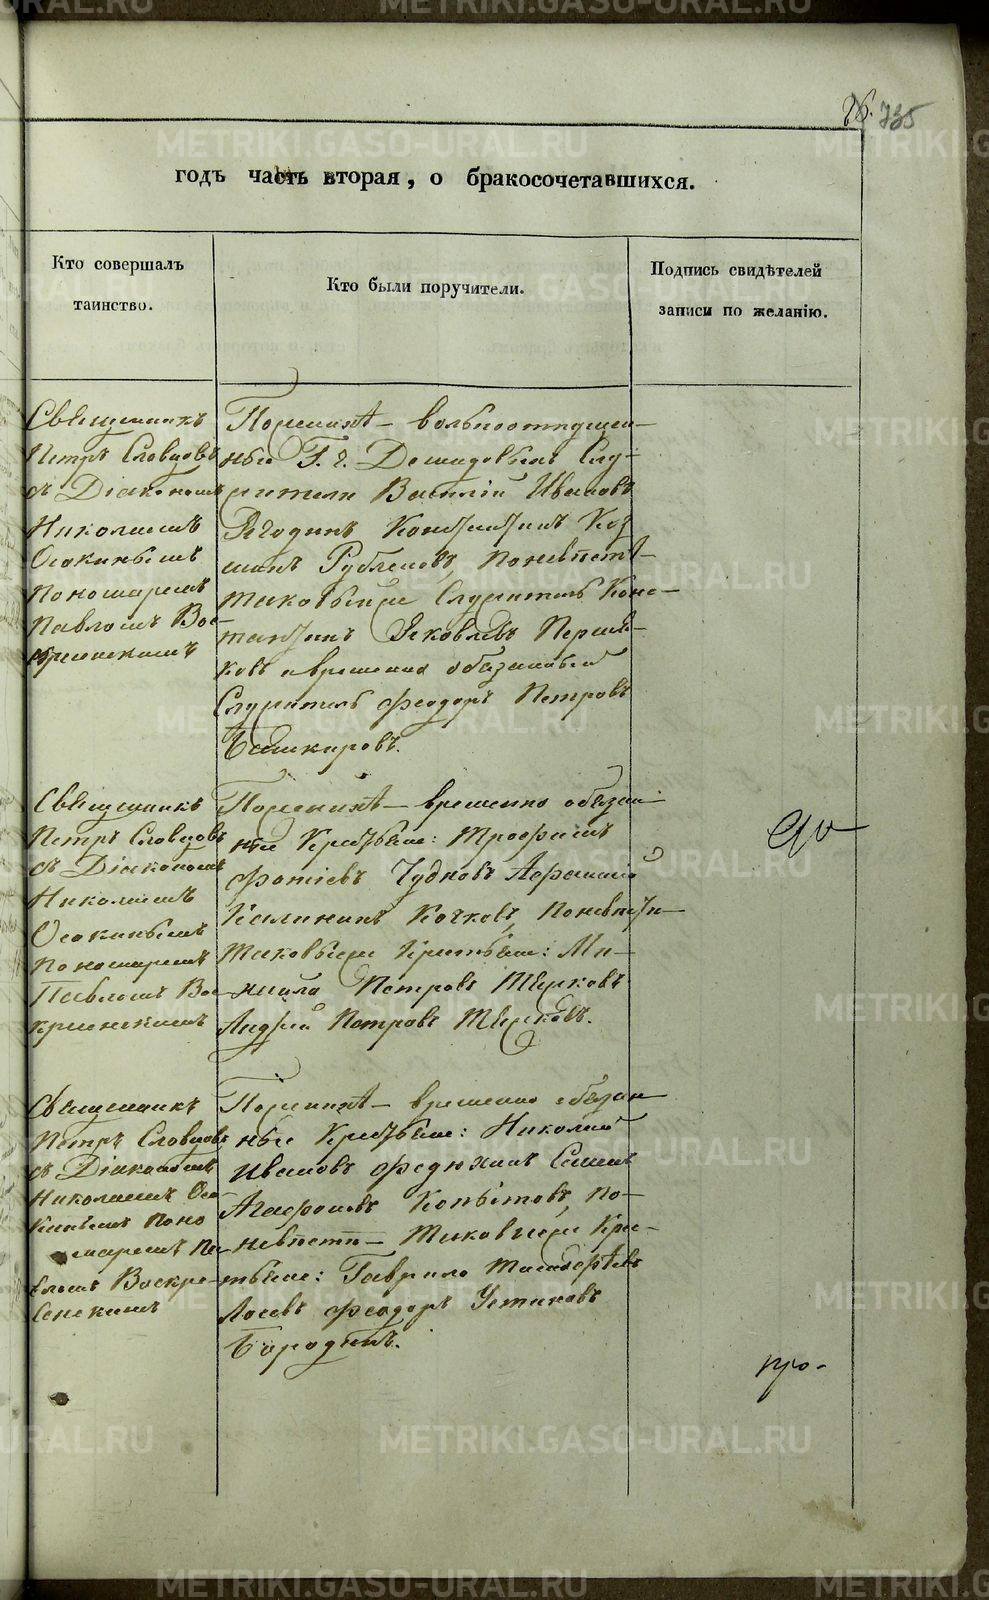 26. 735
годъ часть вторая, о бракосочетавшихся.
Кто совершалъ
таинство.
Кто были поручители.
Подпись свидѣтелей
записи по желанію.
Священникъ
Петръ Словцовъ
съ Діакономъ
Николаемъ
Осокинымъ
Пономаремъ
Павломъ Вос-
кресенскимъ
По женихѣ – вольноотпущен-
ные Г. г. Демидовыхъ Слу-
жители Василій Ивановъ
Ягодинъ Константинъ Коз
минъ Рублевъ, по невѣстѣ –
таковыеже Служитель Конс-
тантинъ Яковлевъ Першa-
ковъ и временно обязанный
Служитель Феодоръ Петровъ
Башкировъ.
Священникъ
Петръ Словцовъ
съ Діакономъ
Николаемъ
Осокинымъ
Пономаремъ
Павломъ Вос-
кресенскимъ
По женихѣ – временно обязан-
ные Крестьяне: Трофимъ
Фотіевъ Чудновъ Афанасій
Калининъ Кочковъ, по невѣстѣ
таковыеже Крестьяне: Ми-
хаило Петровъ
Андрей Петровъ
Священникъ
Петръ Словцовъ
съ Діакономъ
Николаемъ Осо
кинымъ Поно
маремъ Па-
вломъ Воскре-
сенскимъ
По женихѣ – временно обязан
ные Крестьяне: Николай
Ивановъ Федюхинъ Семенъ
Агафоновъ Копытовъ, по-
невѣстѣ – Таковыеже Крес-
тьяне: Гаврило Тимофѣевъ
Лосевъ Феодоръ Устиновъ
Бородинъ.
про-
METRIKI.GASO-URAL.RU